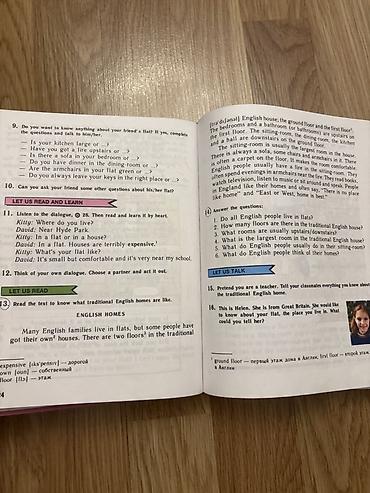 9. Do you want to know anything about your friend's flat? If yes, complete
the questions and talk to him/her.
— Is your kitchen large or ...?
— Have you got a fire upstairs or ...?
— Is there a sofa in your bedroom or ...?
— Do you have dinner in the dining-room or ...?
— Are the armchairs in your flat green or ...?
— Do you always leave your keys in the right place or ...?
10. Can you ask your friend some other questions about his/her flat?
LET US READ AND LEARN
11. Listen to the dialogue, 28. Then read and learn it by heart.
Kitty: Where do you live?
David: Near Hyde Park.
Kitty: In a flat or in a house?
David: In a flat. Houses are terribly expensive.¹
Kitty: What's your flat like?
David: It's small but comfortable and it's very near my school.
12. Think of your own dialogue. Choose a partner and act it out.
LET US READ
13. Read the text to know what traditional English homes are like.
ENGLISH HOMES
Many English families live in flats, but some people
have got their own² houses. There are two floors³ in the traditional
expensive [ɪks'pensɪv] — дорогой
own [əʊn] — собственный
floor [flɔ:] — этаж
English house; the ground floor and the first floor¹.
The bedrooms and a bathroom (or bathrooms) are upstairs on
the first floor. The sitting-room, the dining-room, the kitchen
and a hall are downstairs on the ground floor.
The sitting-room is usually the largest room in the house.
There is always a sofa, some chairs and armchairs in it. There
is often a carpet on the floor. It makes the room comfortable.
English people usually have a fire in the sitting-room. They
often spend evenings in armchairs near the fire. They read books,
watch television, listen to music or sit around and speak. People
in England like their homes and often say, "There is no place
like home" and "East or West, home is best."
14. Answer the questions:
1. Do all English people live in flats?
2. How many floors are there in the traditional English house?
3. What rooms are usually upstairs/downstairs?
4. What is the largest room in the traditional English house?
5. What do English people usually do in their sitting-room?
6. What do English people think of their homes?
LET US TALK
15. Pretend you are a teacher. Tell your classmates everything you know about
the traditional English home.
16. This is Helen. She is from Great Britain. She would like
to know about your flat, the place you live in. What
could you tell her?
ground floor — первый этаж дома в Англии, first floor — второй этаж
в Англии